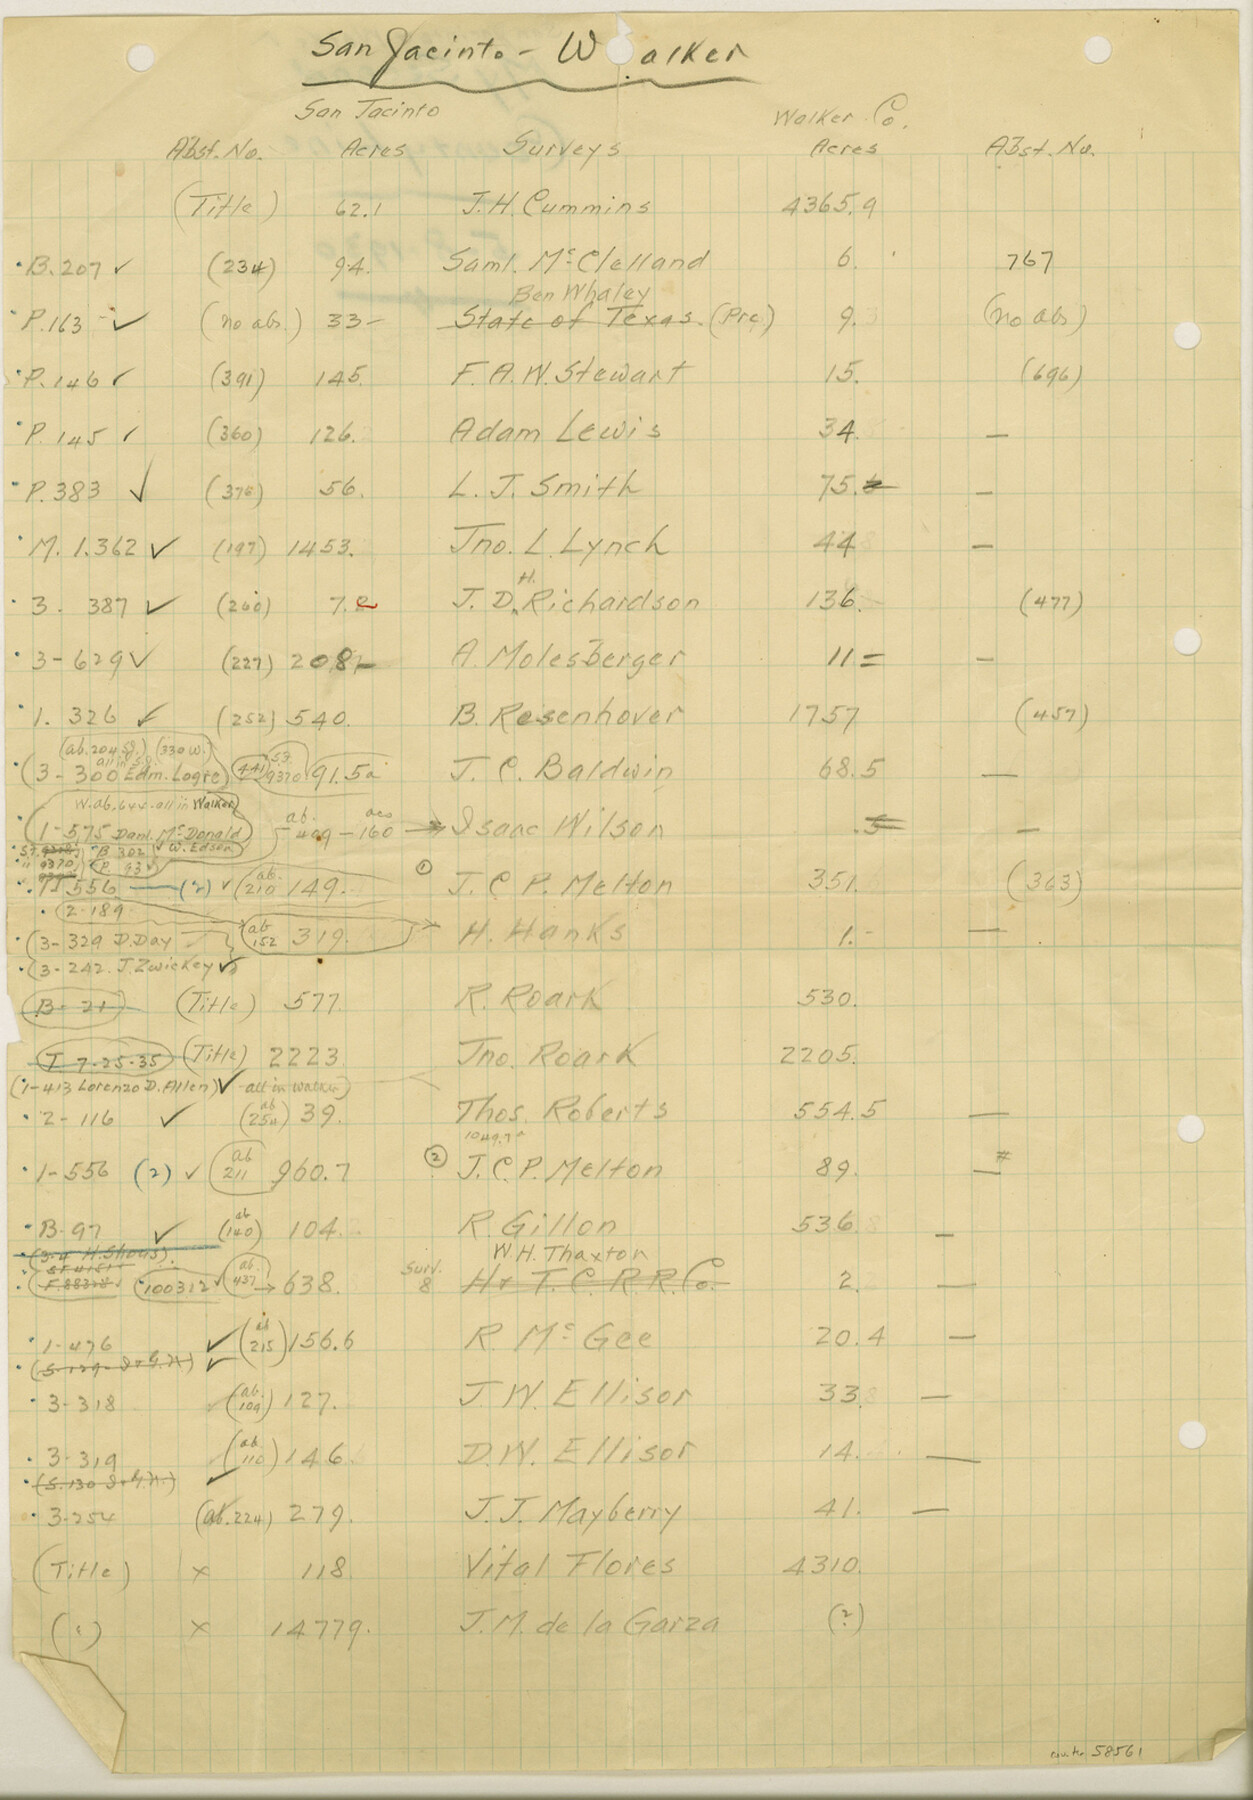 San Jacinto - Walker
San Jacinto Walker Co.
Abst. No. Acres Surveys Acres Abst. No.
(Title) 62.1 J. H. Cummins 4365.9
B. 207 ✓ (234) 94. Saml. McClelland 6. 767
Ben Whaley
P. 163 - ✓ (no abs.) 33- State of Texas. (Pre) 9. (no abs)
P. 146 ✓ (391) 145. F. A. W. Stewart 15. (696)
P. 145 ✓ (360) 126. Adam Lewis 34. —
P. 383 ✓ (376) 56. L. J. Smith 75. —
M. 1.362 ✓ (197) 1453. Jno. L. Lynch 44 —
H.
3. 387 ✓ (260) 7. J. D. Richardson 136. (477)
3-629 ✓ (227) 208- A. Molesberger 11 —
1. 326 ✓ (252) 540. B. Resenhover 1757 (457)
(ab. 204 S.J.) (330 W.)
all in S.J.
(3-300 Edm. Logre) 441 S.J. 9370 91.5a J. C. Baldwin 68.5 —
W. ab. 644 - all in Walker
1-575 Danl. McDonald ab. 409 - acs 160 → Isaac Wilson .5 —
B 302 ✓ W. Edson
" 9370 P. 93 ✓
1-556 — (2) ✓ ab. 210 149. ① J. C. P. Melton 351. (363)
2-189
(3-329 D. Day ab 152 319. → H. Hanks 1.- —
(3-242. J. Zwickey ✓)
B-21 (Title) 577. R. Roark 530.
T. 7-25-35 (Title) 2223. Jno. Roark 2205.
(1-413 Lorenzo D. Allen) ✓ -all in Walker)
2-116 ✓ (ab 254) 39. Thos. Roberts 554.5 —
1049.7a
1-556 (2) ✓ ab 211 960.7 ② J. C. P. Melton 89. — #
B-97 ✓ (ab 140) 104. R. Gillon 536. —
(3-4 H. Shows). W. H. Thaxton
(F. 88328 ✓ 100312 ✓ ab. 437 → 638. Surv. 8 H & T. C. R. R. Co. 2. —
1-476 ✓ (ab 215) 156.6 R. McGee 20.4 —
(S. 129- I & G. N.) ✓
3-318 (ab. 109) 127. J. W. Ellisor 33. —
3-319 (ab 110) 146. D. W. Ellisor 14. —
(S. 130 I & G. N.) ✓
3-254 (ab. 224) 279. J. J. Mayberry 41. —
(Title) x 118. Vital Flores 4310.
(") x 14779. J. M. de la Garza (?)
58561